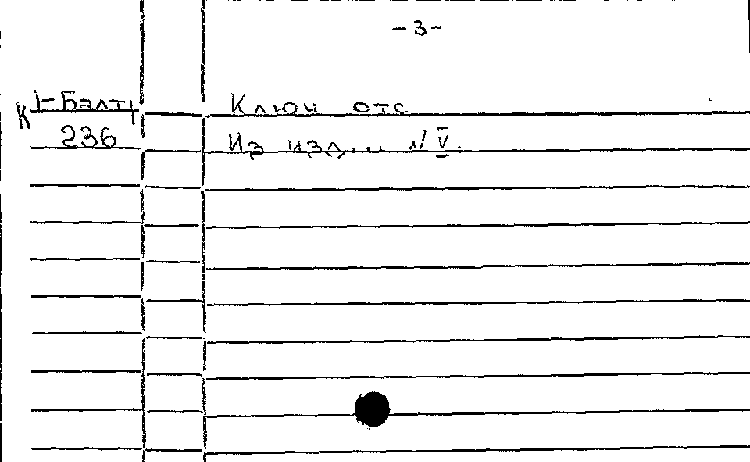 -3-
К 1-Балт Ключ отс
236 Из изд. и № V.